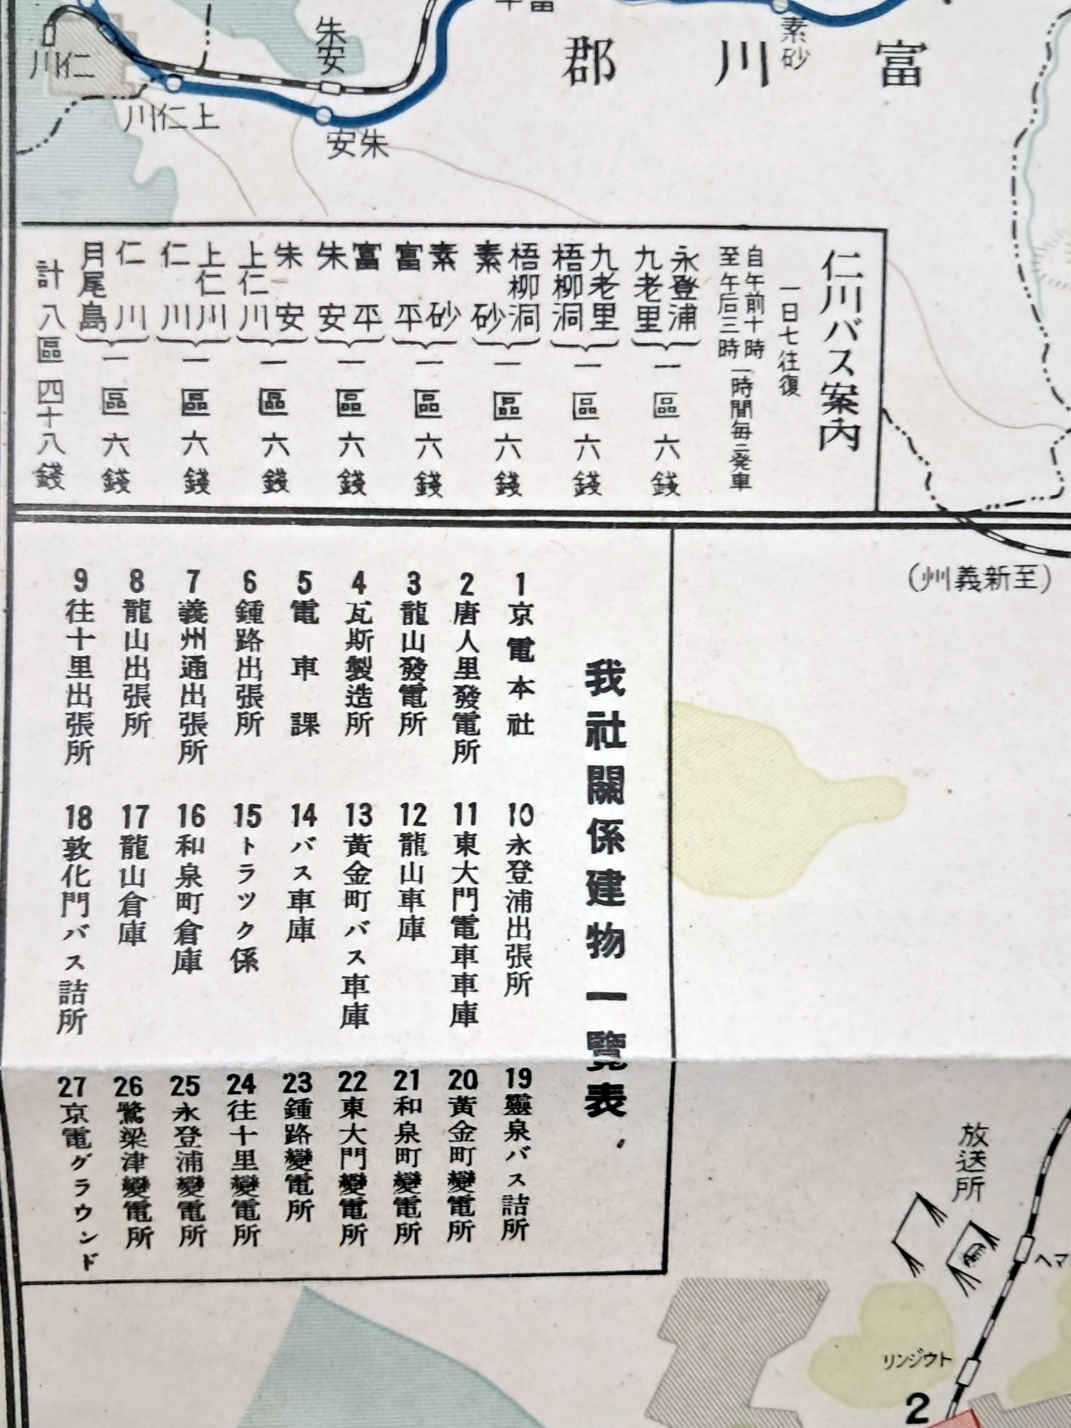 仁川
朱安
上仁川
朱安
素砂
富川郡
仁川バス案内
一日七往復
自午前十時
至午后三時
一時間每ニ発車
永登浦
九老里
一區 六錢
九老里
梧柳洞
一區 六錢
梧柳洞
素砂
一區 六錢
素砂
富平
一區 六錢
富平
朱安
一區 六錢
朱安
上仁川
一區 六錢
上仁川
仁川
一區 六錢
仁川
月尾島
一區 六錢
計 八區 四十八錢
(至新義州)
我社關係建物一覽表
1 京電本社
2 唐人里發電所
3 龍山發電所
4 瓦斯製造所
5 電車課
6 鍾路出張所
7 義州通出張所
8 龍山出張所
9 往十里出張所
10 永登浦出張所
11 東大門電車車庫
12 龍山車庫
13 黃金町バス車庫
14 バス車庫
15 トラック係
16 和泉町倉庫
17 龍山倉庫
18 敦化門バス詰所
19 靈泉バス詰所
20 黃金町變電所
21 和泉町變電所
22 東大門變電所
23 鍾路變電所
24 往十里變電所
25 永登浦變電所
26 鷺梁津變電所
27 京電グラウンド
放送所
リンジウト
2